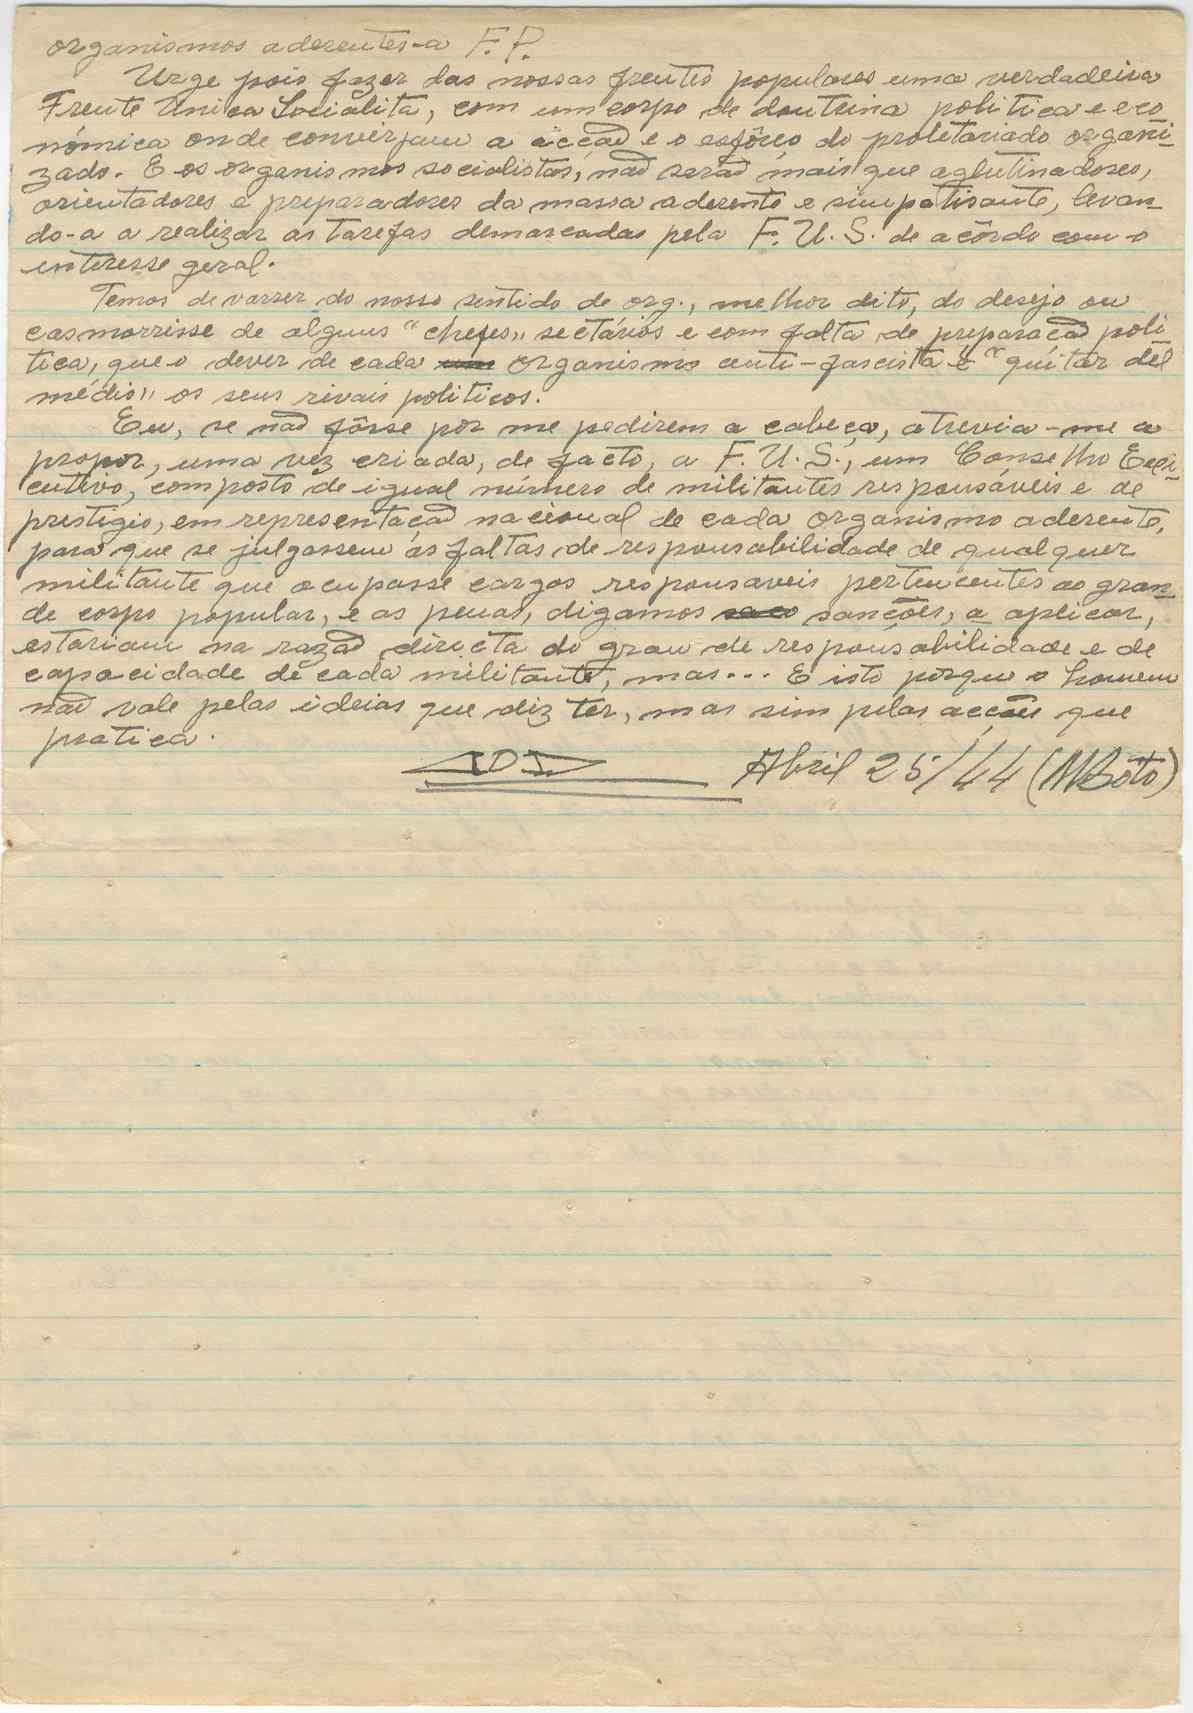 organismos aderentes-a F.P.
Urge pois fazer das nossas frentes populares uma verdadeira
Frente Unica Socialita, com um corpo de doutrina politica e eco
nómica onde converjam a acção e o esfôrço do proletariado organi-
zado. E os organismos socialistas, não serão mais que aglutinadores,
orientadores e preparadores da massa aderente e simpatisante, levan-
do-a a realizar as tarefas demarcadas pela F.U.S. de acôrdo com o
interesse geral.
Temos de varrer do nosso sentido de org., melhor dito, do desejo ou
casmorrisse de alguns "chefes" sectários e com falta de preparação poli
tica, que o dever de cada organismo anti-fascista é "quitar del
médio" os seus rivais politicos.
Eu, se não fôsse por me pedirem a cabeça, atrevia-me a
propor, uma vez criada, de facto, a F.U.S., um Conselho Exe-
cutivo, composto de igual número de militantes responsáveis e de
prestigio, em representação nacional de cada organismo aderente,
para que se julgassem as faltas de responsabilidade de qualquer
militante que ocupasse cargos responsaveis pertencentes ao gran-
de corpo popular, e as penas, digamos sanções, a aplicar,
estariam na razão directa do grau de responsabilidade e de
capacidade de cada militante, mas... E isto porque o homem
não vale pelas ideias que diz ter, mas sim pelas acções que
pratica.
Abril 25/44 (MBôto)